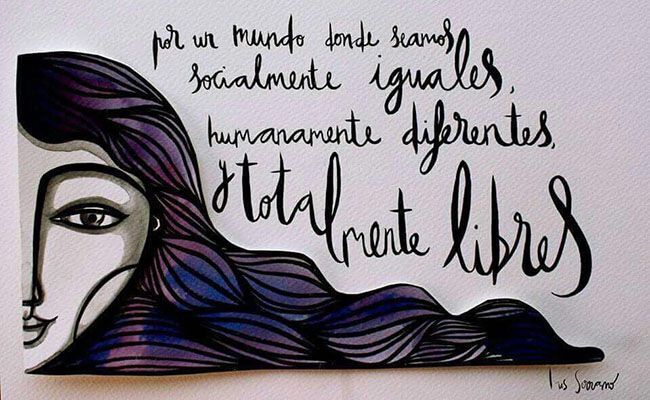 por un mundo donde seamos
socialmente iguales,
humanamente diferentes,
y totalmente libres
Serrano